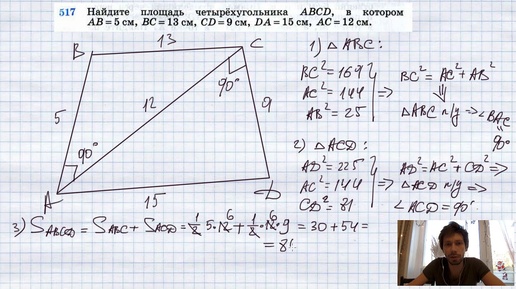 517 Найдите площадь четырёхугольника ABCD, в котором
AB = 5 см, BC = 13 см, CD = 9 см, DA = 15 см, AC = 12 см.
B
13
C
5
12
90°
9
90°
A
15
D
1) △ABC:
BC² = 169
AC² = 144
AB² = 25
=> BC² = AC² + AB²
⇓
△ABC п/у => ∠BAC
=
90°
2) △ACD:
AD² = 225
AC² = 144
CD² = 81
=> AD² = AC² + CD² =>
=> △ACD п/у =>
∠ACD = 90°.
3) S_ABCD = S_ABC + S_ACD = 1/2 · 5 · 12 6 + 1/2 · 12 6 · 9 = 30 + 54 =
= 84